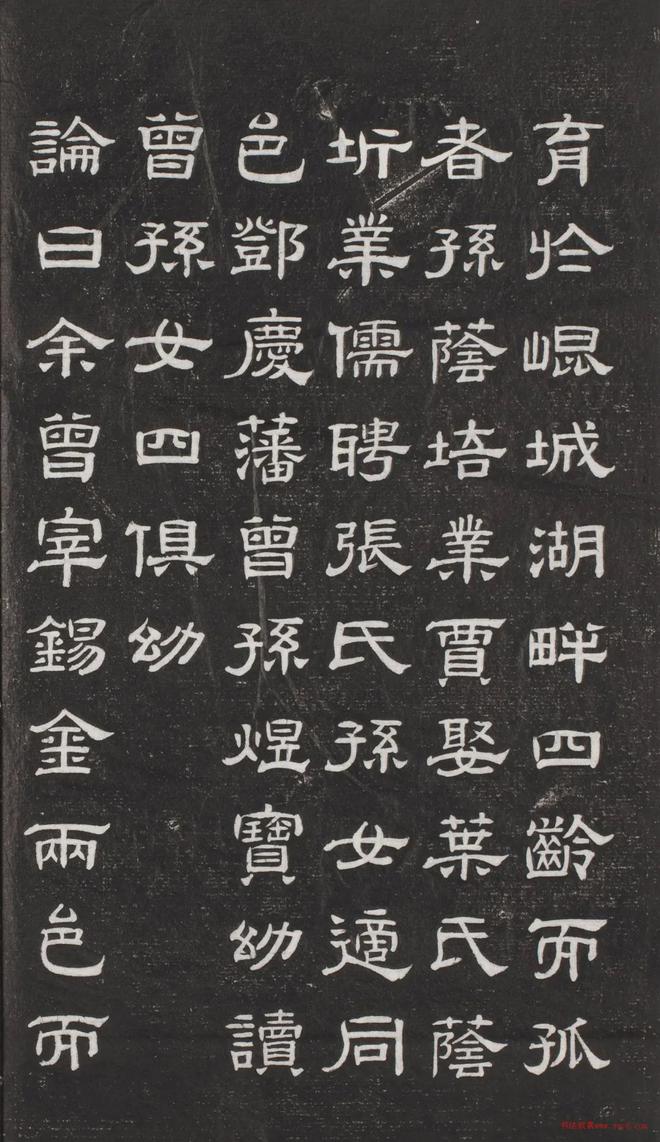 育於崐城湖畔四齡而孤
者孫蔭培業賈娶葉氏蔭
圻業儒聘張氏孫女適同
邑鄧慶藩曾孫煜寶幼讀
曾孫女四俱幼
論曰余曾宰錫金兩邑而